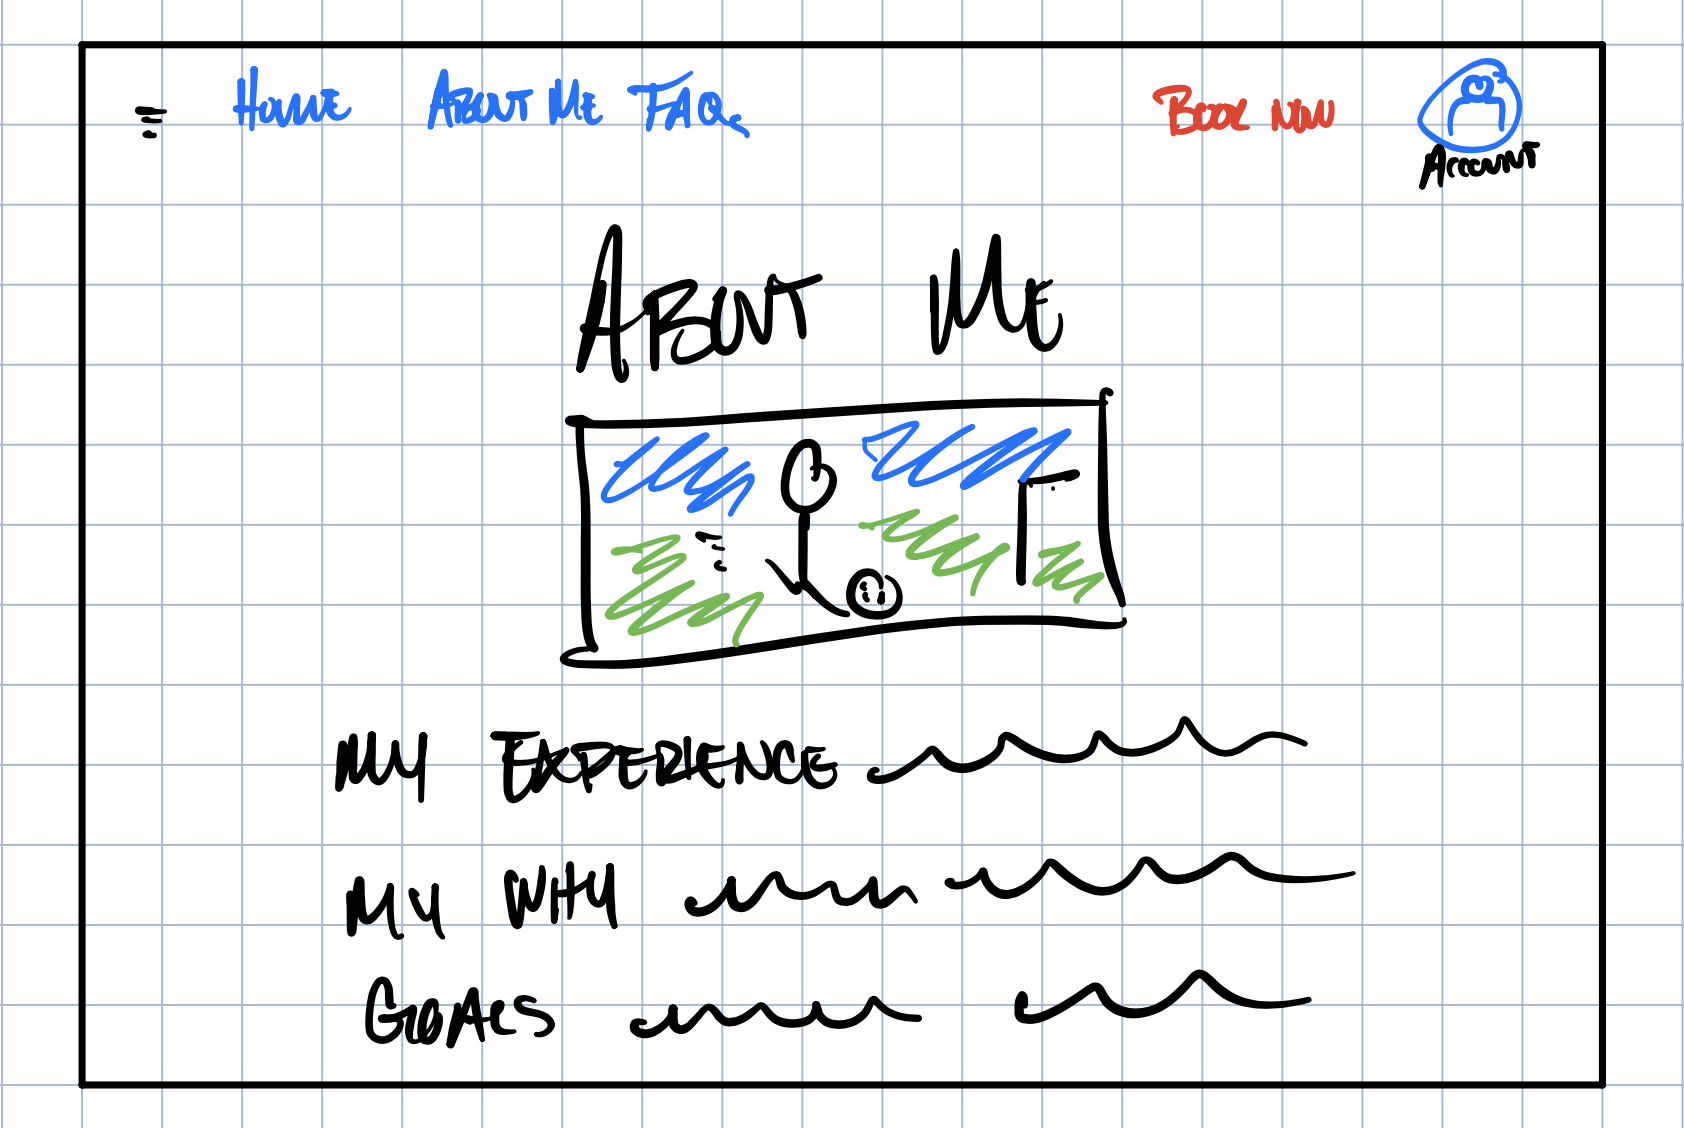 Home About Me FAQ Book Now
Account
About Me
My Experience
My Why
Goals